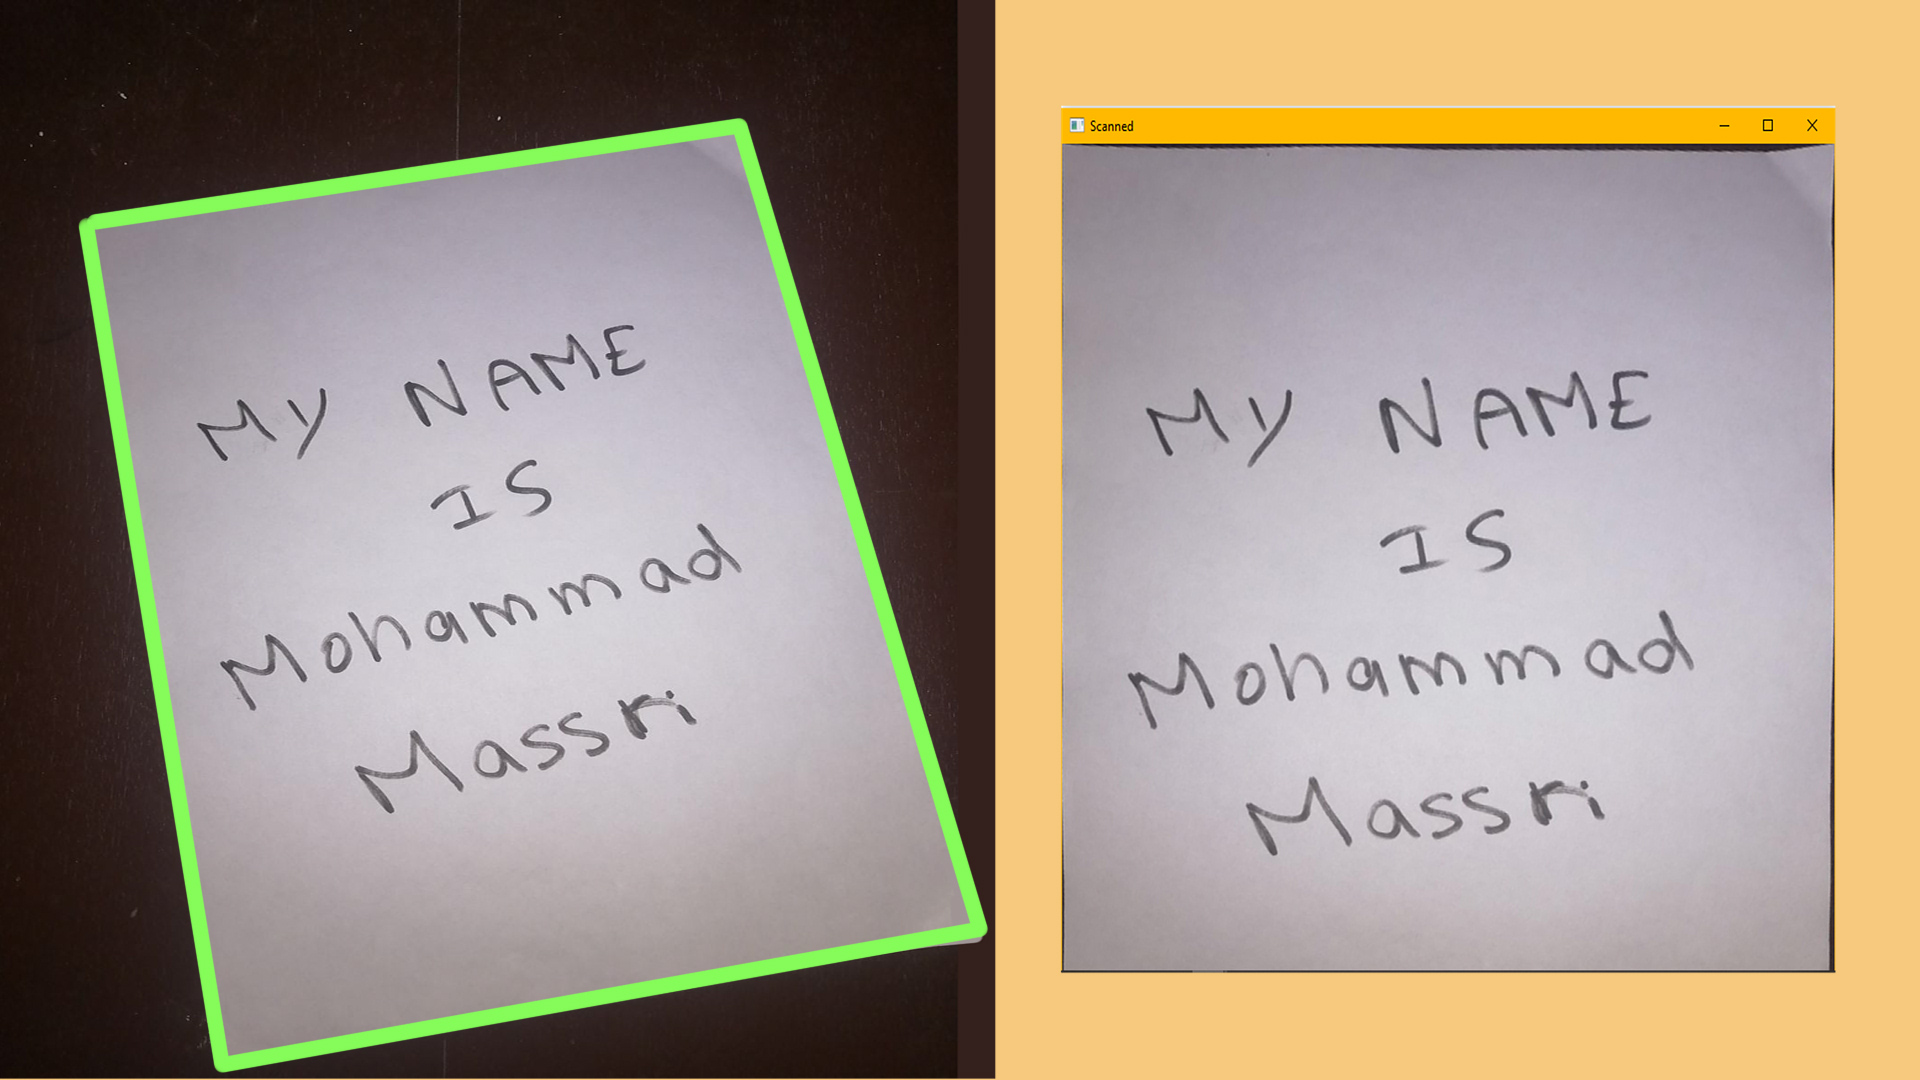 MY NAME
IS
Mohammad
Massri
Scanned
MY NAME
IS
Mohammad
Massri